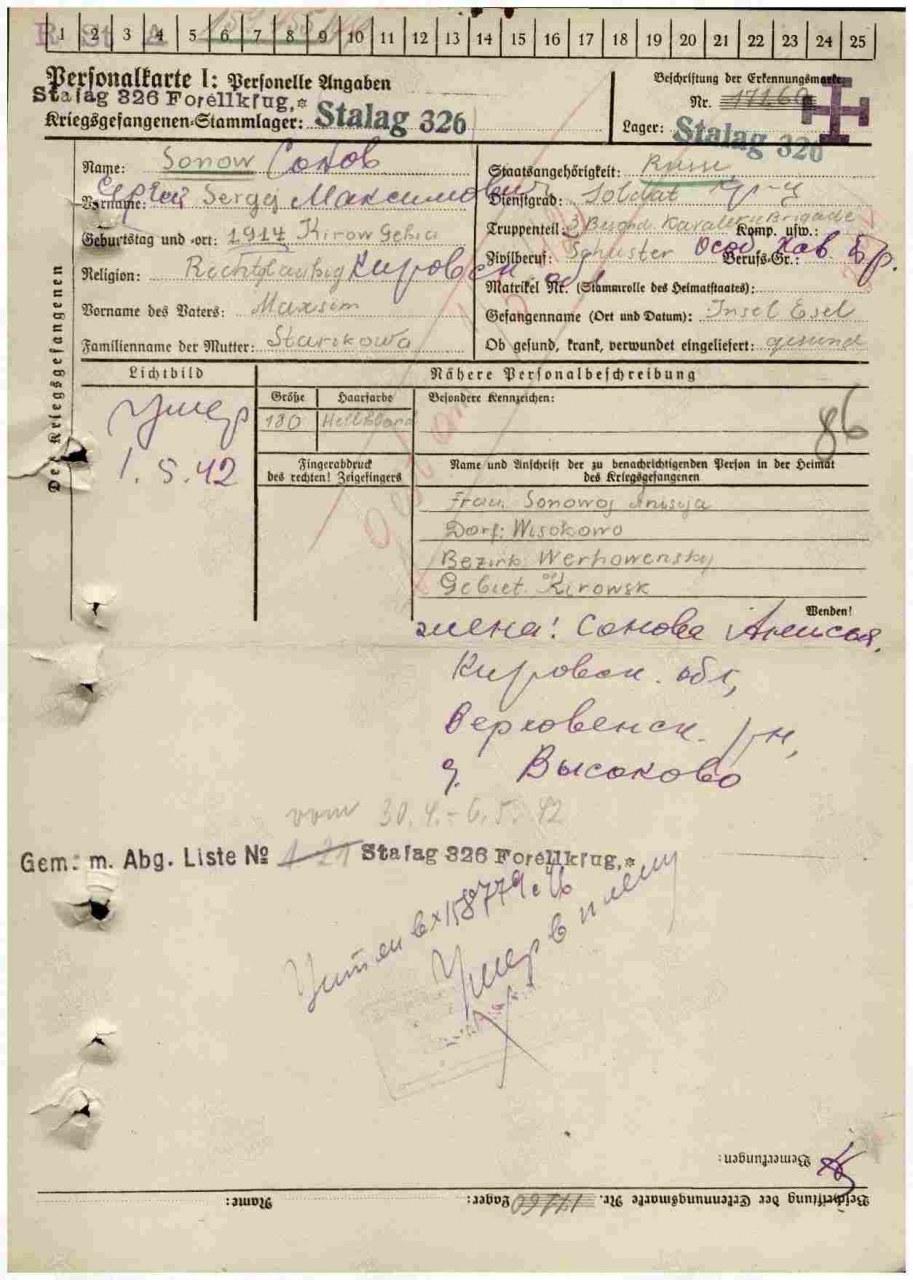 1 2 3 4 5 6 7 8 9 10 11 12 13 14 15 16 17 18 19 20 21 22 23 24 25
Personalkarte I: Personelle Angaben
Stalag 326 Forellkrug,*
Kriegsgefangenen-Stammlager: Stalag 326
Beschriftung der Erkennungsmarke
Nr. 17160
Lager: Stalag 326
Des Kriegsgefangenen
Name: Sonow Сонов
Vorname: Сергей Sergej Максимович
Geburtstag und -ort: 1917 Kirow Gebiet
Religion: Rechtgläubig Кировск обл
Vorname des Vaters: Maxsim
Familienname der Mutter: Starikowa
Staatsangehörigkeit: Russe
Dienstgrad: Soldat Кр-ц
Truppenteil: 3 Besond. Kavalerie Brigade Komp. usw.:
Zivilberuf: Schuster Berufs-Gr.: Особ. Кав. Бр.
Matrikel Nr. (Stammrolle des Heimatstaates):
Gefangennahme (Ort und Datum): Insel Esel
Ob gesund, krank, verwundet eingeliefert: gesund
Lichtbild
Умер
1.5.42
Nähere Personalbeschreibung
Größe Haarfarbe Besondere Kennzeichen:
180 Hellblond
86
Fingerabdruck
des rechten! Zeigefingers
Name und Anschrift der zu benachrichtigenden Person in der Heimat
des Kriegsgefangenen
Frau. Sonowoj Anisija
Dorf: Wisokowo
Bezirk: Werhowensky
Gebiet. Kirowsk
Wenden!
жена: Сонова Анисья,
Кировск. обл,
Верховенск. р-н,
д. Высоково
vom 30.4.-6.5.42
Gem. m. Abg. Liste № 1-21 Stalag 326 Forellkrug,*
Учтен вх 158779с46
Умер в плену
Bemerkungen:
Beschriftung der Erkennungsmarke Nr. 17160 Lager: Name: